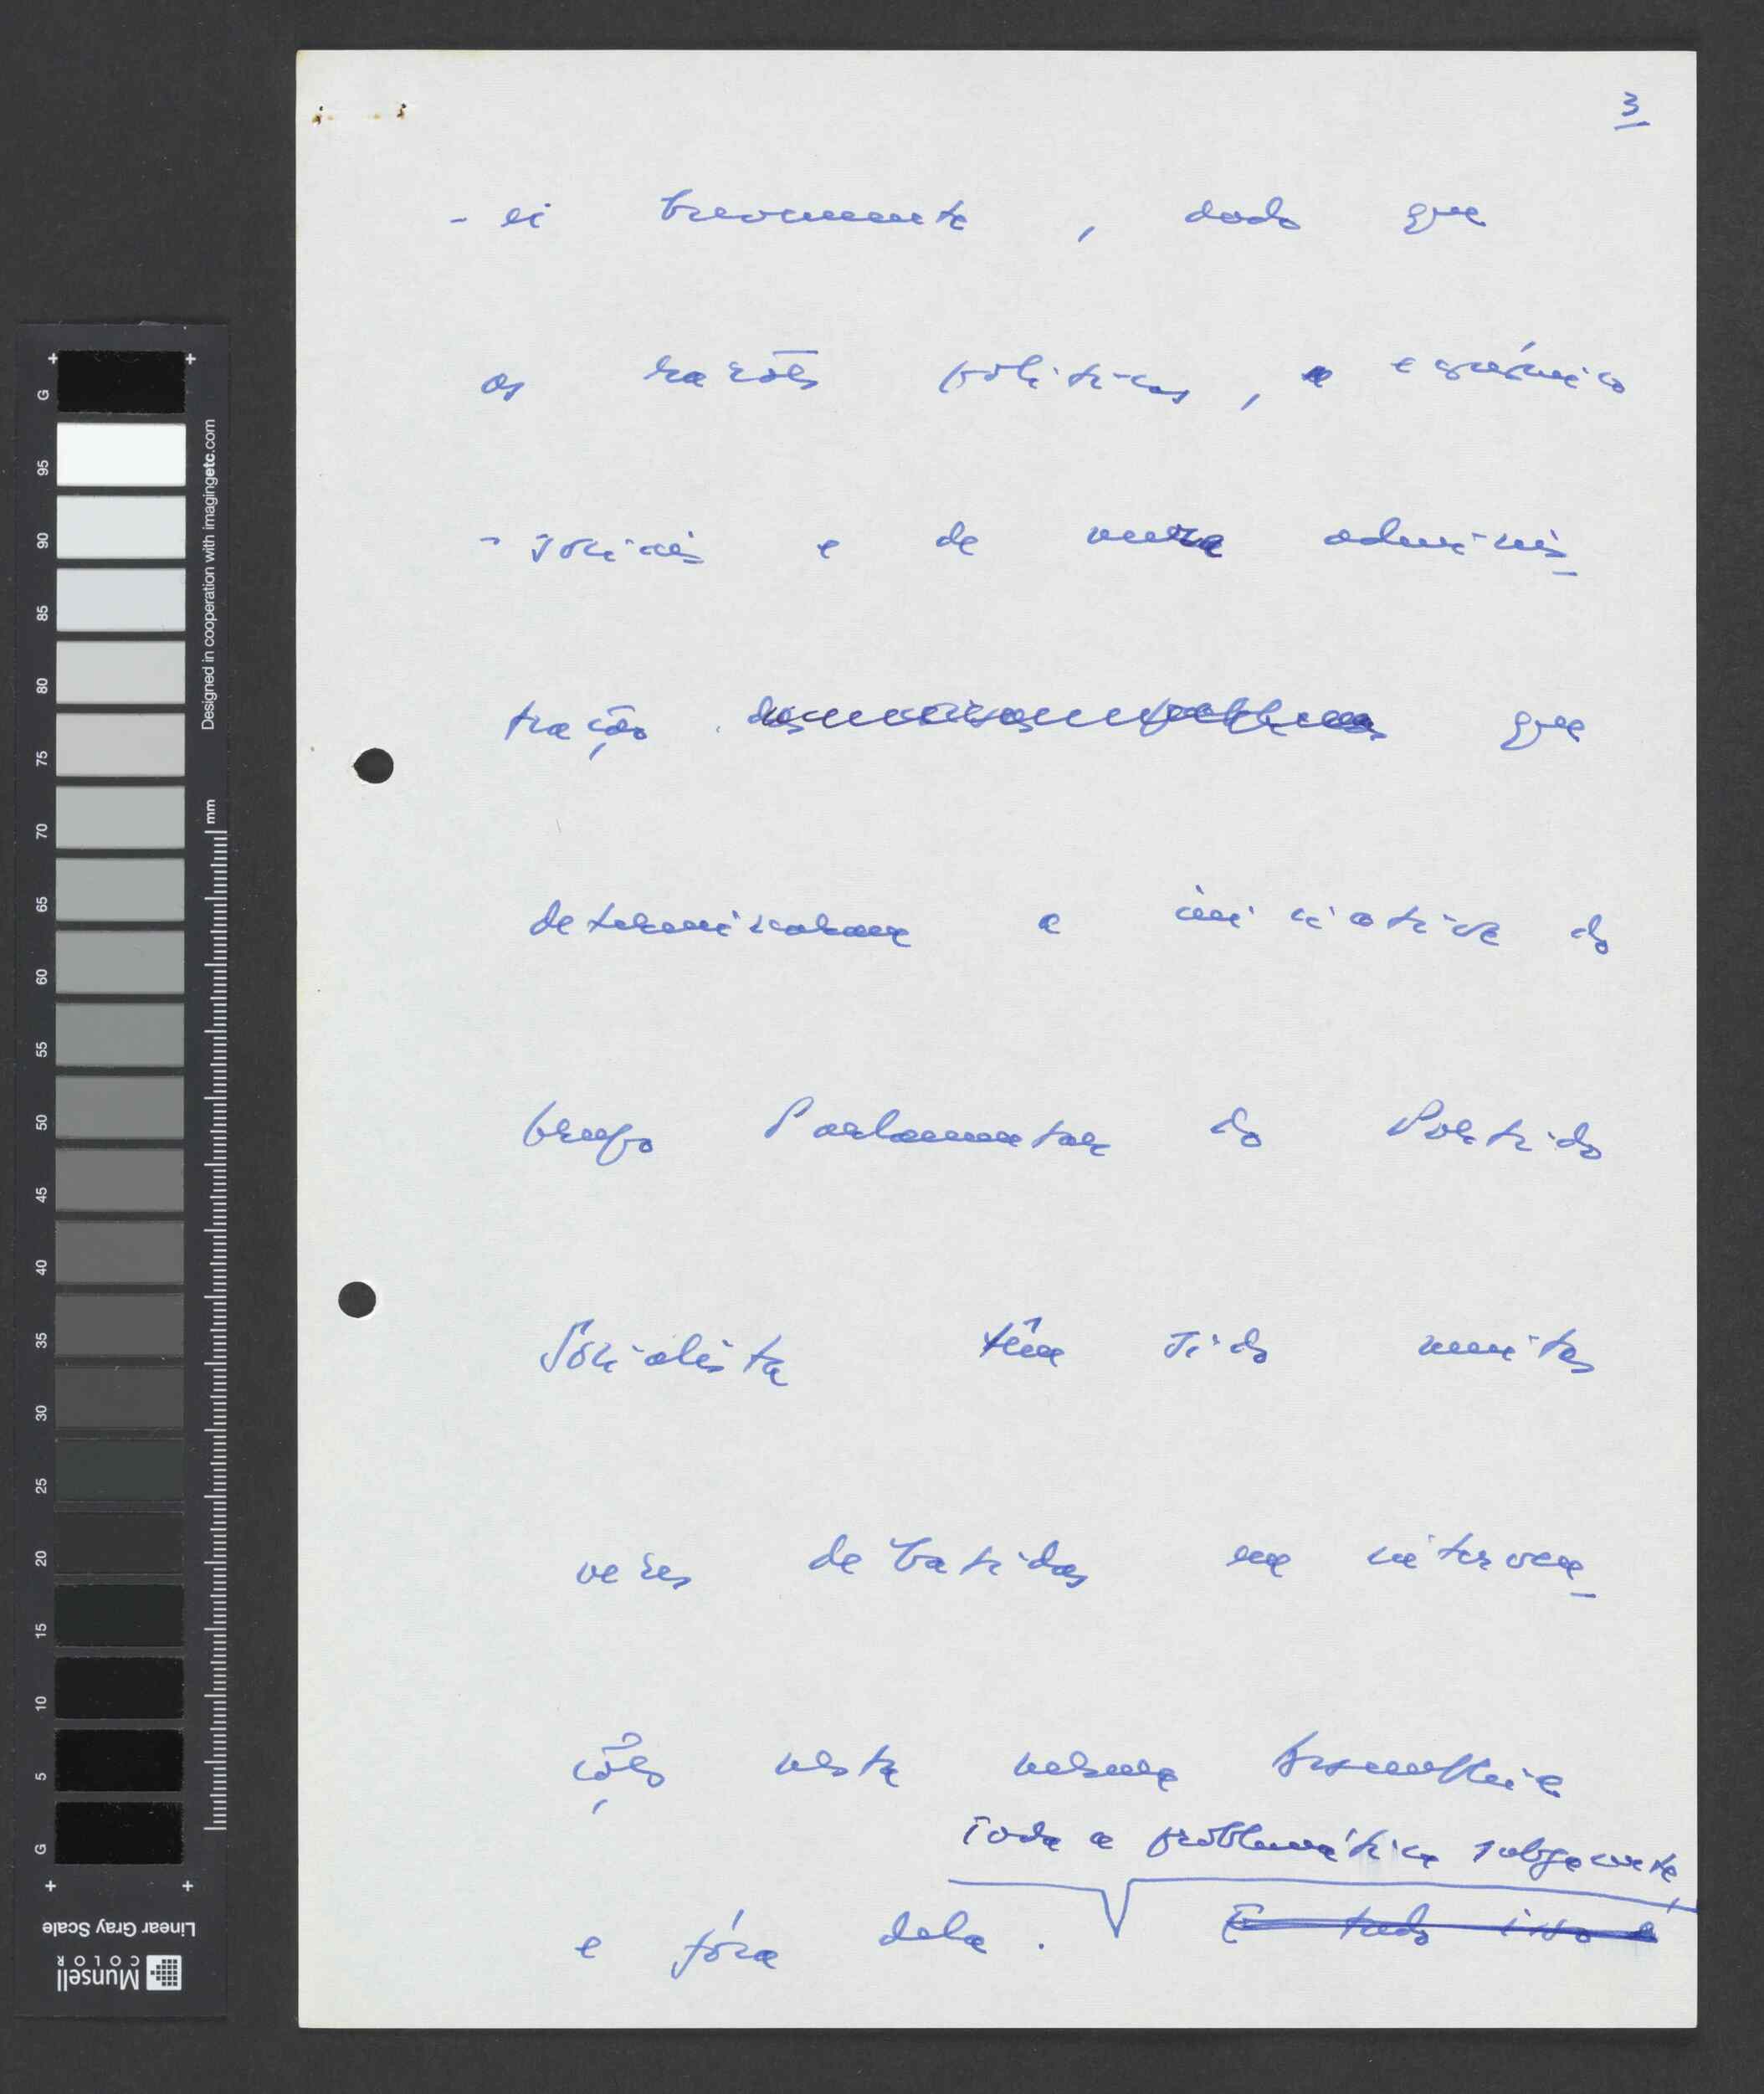 3
-ei brevemente, dado que
as razões políticas, e económico
-sociais e de mera adminis_
tração que
determinaram a iniciativa do
Grupo Parlamentar do Partido
Socialista têm sido muitas
vezes debatidas em interven_
ções nesta mesma Assembleia
Toda a problemática subjacente,
e fóra dela. E tudo isso é
G
95
90
85
80
75
70
65
60
55
50
45
40
35
30
25
20
15
10
5
G
Designed in cooperation with imagingetc.com
mm
Linear Gray Scale
Munsell
COLOR